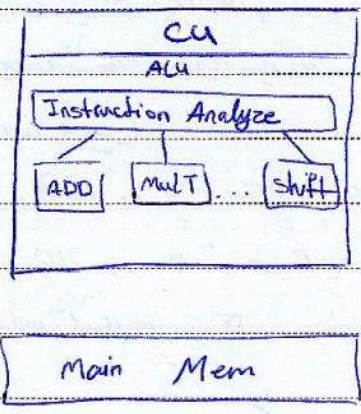 CU
ALU
Instruction Analyze
ADD MulT ... Shift
Main Mem